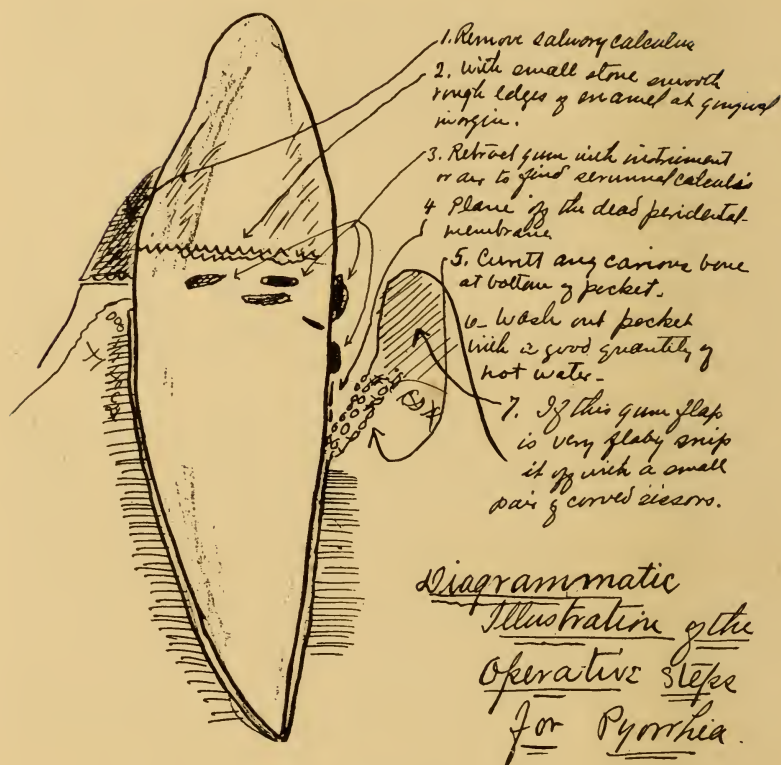 1. Remove salivary calculus
2. With small stone smooth
rough edges of enamel at gingival
margin.
3. Retract gum with instrument
or air to find serumnal calculus
4 Plane off the dead peridental
membrane
5. Curett any carious bone
at bottom of pocket.
6- Wash out pocket
with a good quantity of
hot water-
7. If this gum flap
is very flaby snip
it off with a small
pair of corved sissors.
Diagrammatic
Illustration of the
Operative Steps
for Pyorrhea.